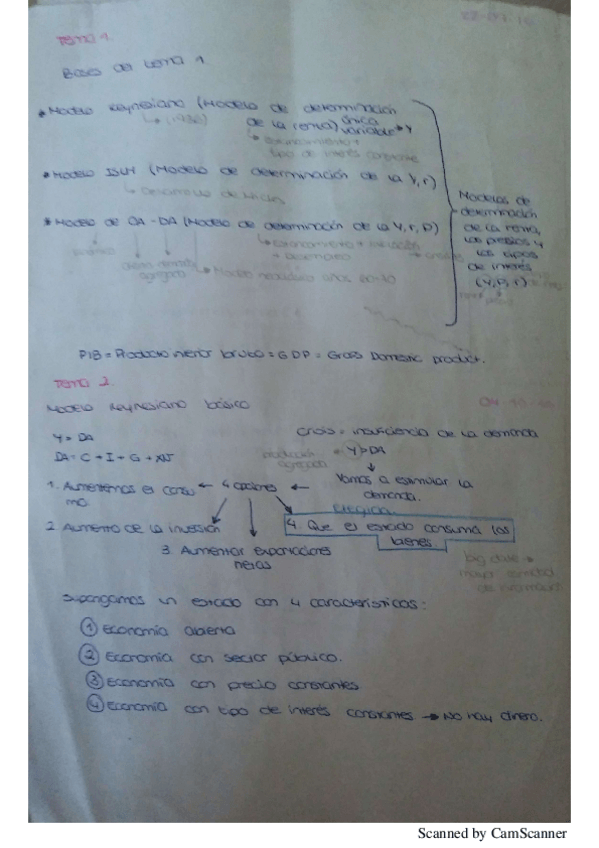 Tema 1.
Bases del tema 1
* Modelo Keynesiano (Modelo de determinación
de la renta) única variable → Y
↳ (1936)
↳ Estancamiento +
tipo de interés constante
* Modelo ISLM (Modelo de determinación de la Y, r)
↳ Desarrollo de Hicks
* Modelo de OA-DA (Modelo de determinación de la Y, r, P)
↳ Estancamiento + inflación
oferta demanda
agregada
↳ Modelo neoclásico años 60-70
Modelos de
determinación
de la renta,
los precios y
los tipos
de interés
(Y, P, r)
PIB = Producto interior bruto = GDP = Gross Domestic product.
Tema 2.
Modelo Keynesiano básico
Y = DA
DA = C + I + G + XN
Crisis = insuficiencia de la demanda
producción agregada
Y > DA
↓
Vamos a estimular la
demanda.
← 4 opciones ←
1. Aumentemos el consu
mo.
2. Aumento de la inversión
3. Aumentar exportaciones
netas
4. Que el estado consuma los
bienes
big data →
mayor cantidad
de información
Supongamos un estado con 4 características:
① Economía abierta
② Economía con sector público.
③ Economía con precio constantes
④ Economía con tipo de interés constantes → No hay dinero.
Scanned by CamScanner